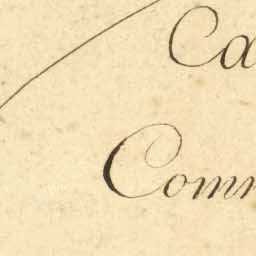 Ca
Comm